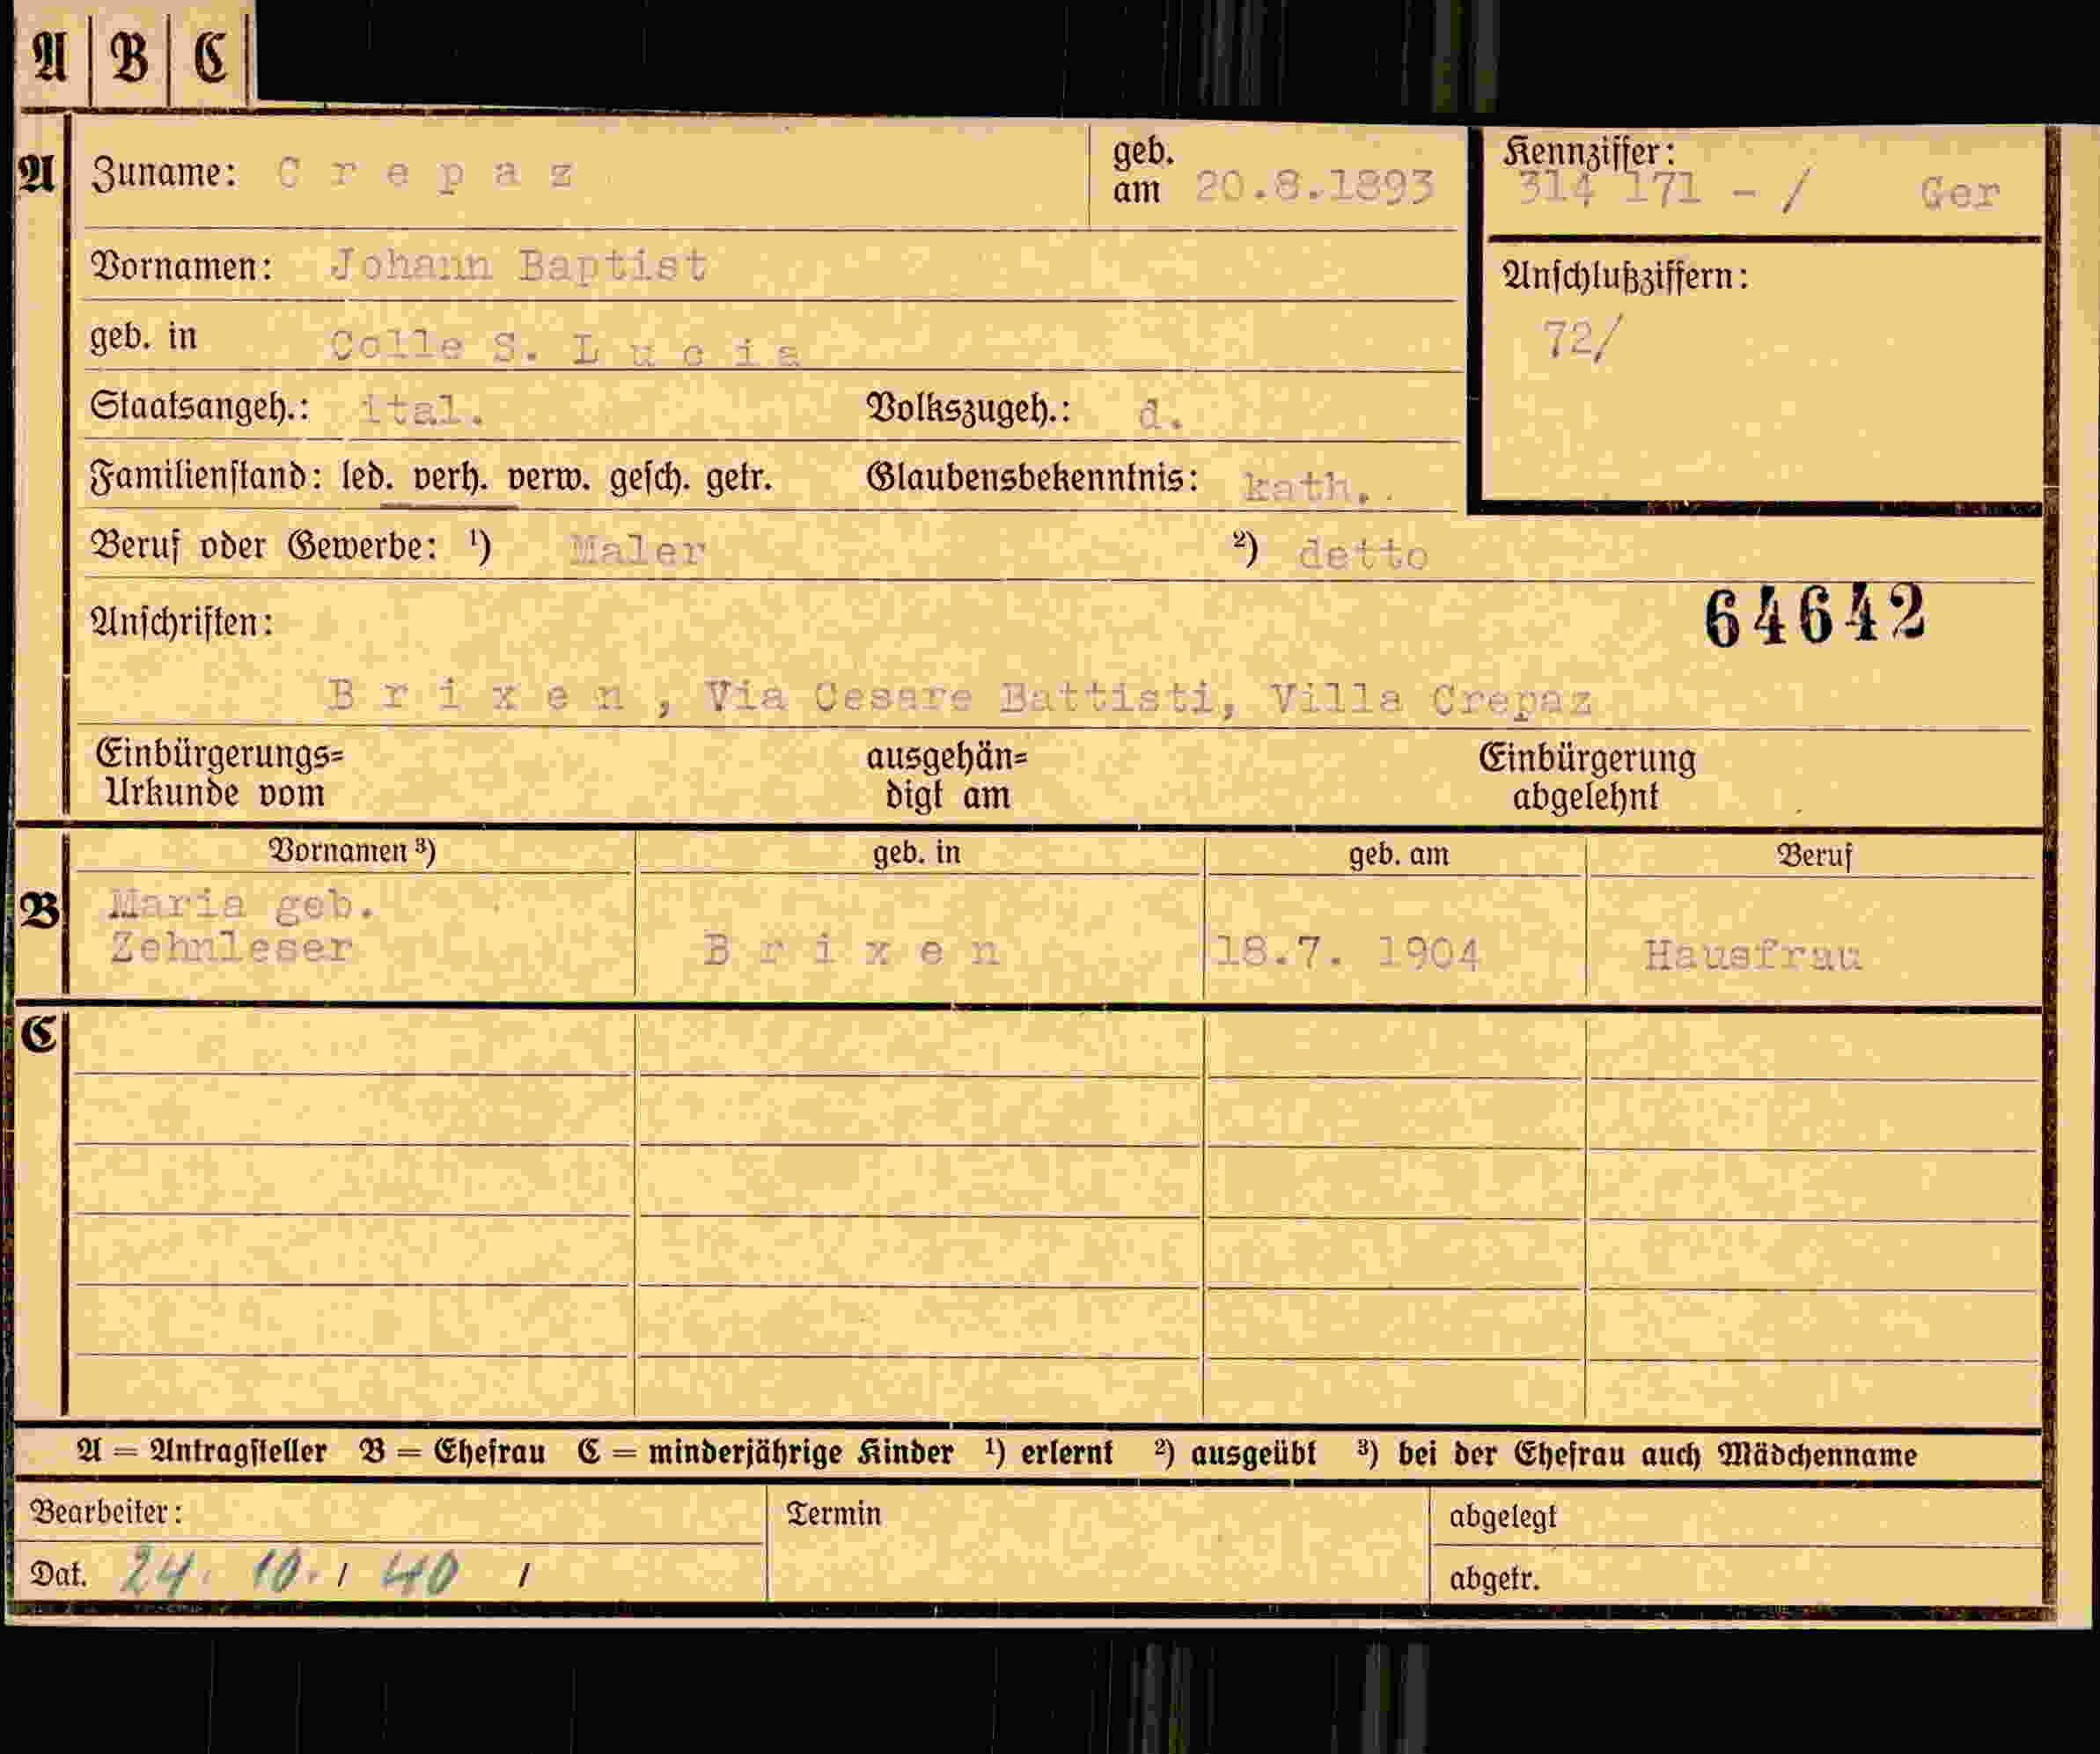 A B C
A Zuname: Crepaz geb. am 20.8.1893 Kennziffer: 314 171 - / Ger
Vornamen: Johann Baptist Anschlußziffern:
geb. in Colle S. Lucia 72/
Staatsangeh.: ital. Volkszugeh.: d.
Familienstand: led. verh. verw. gesch. getr. Glaubensbekenntnis: kath.
Beruf oder Gewerbe: ¹) Maler ²) detto
Anschriften: 64642
Brixen, Via Cesare Battisti, Villa Crepaz
Einbürgerungs= ausgehän= Einbürgerung
Urkunde vom digt am abgelehnt
Vornamen ³) geb. in geb. am Beruf
B Maria geb.
Zehnleser Brixen 18.7. 1904 Hausfrau
C
A = Antragsteller B = Ehefrau C = minderjährige Kinder ¹) erlernt ²) ausgeübt ³) bei der Ehefrau auch Mädchenname
Bearbeiter: Termin abgelegt
Dat. 24. 10. / 40 / abgetr.